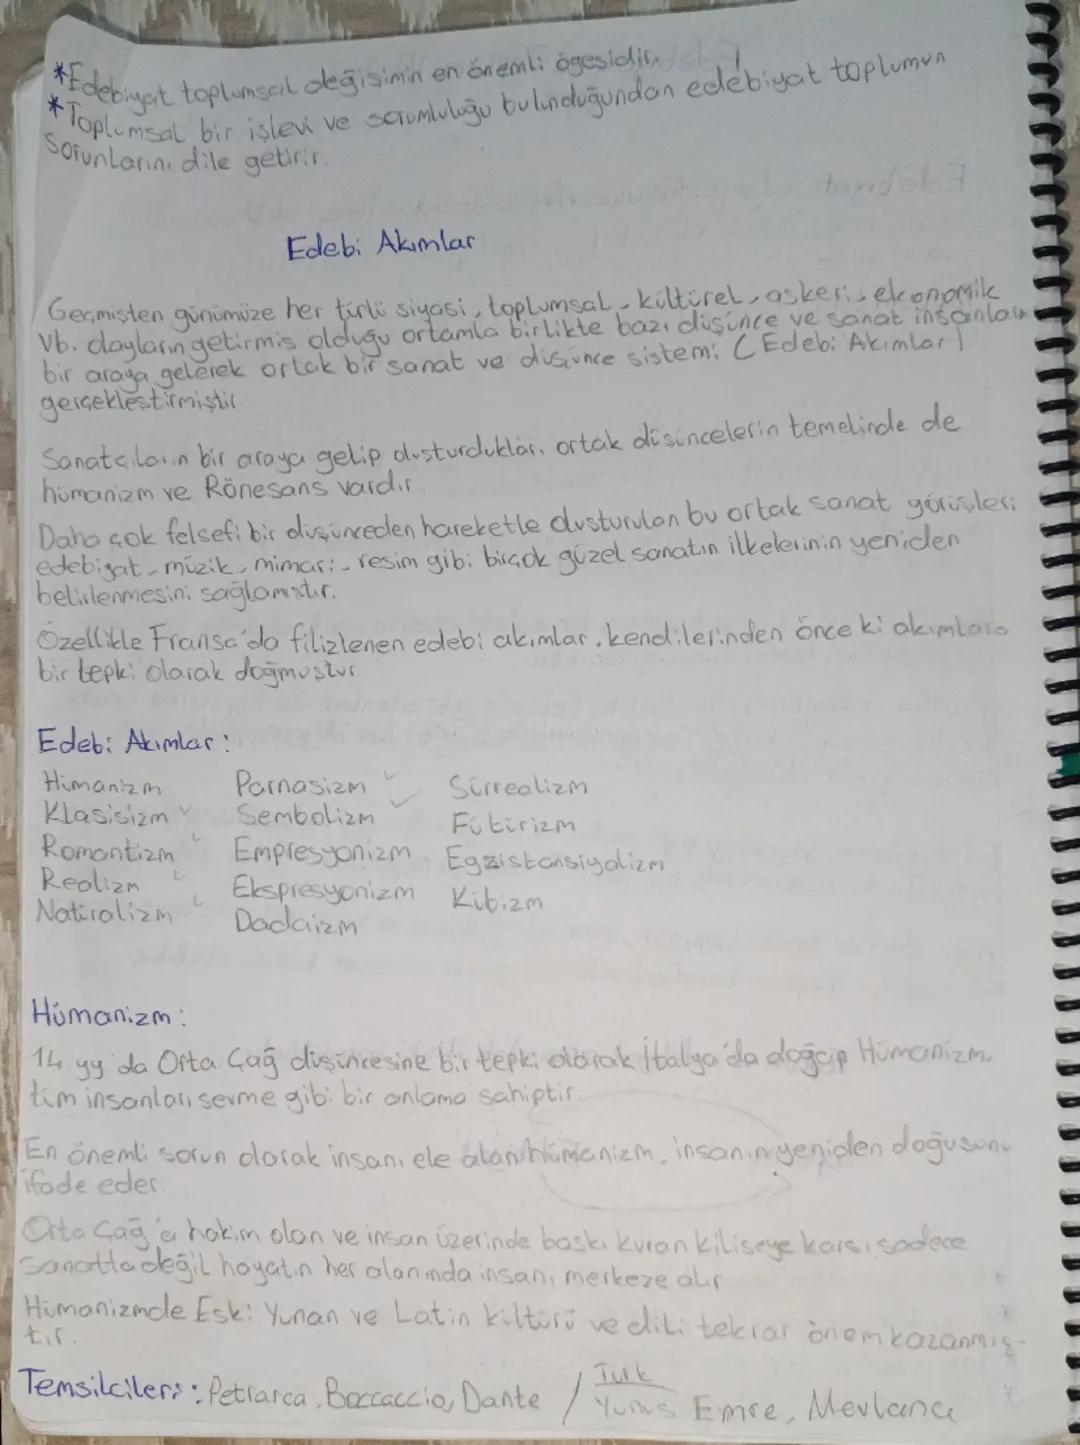 *Edebiyat toplumsal değişimin en önemli ögesidir.
*Toplumsal bir işlevi ve sorumluluğu bulunduğundan edebiyat toplumun
sorunlarını dile getirir.
Edebi Akımlar
Geçmişten günümüze her türlü siyasi, toplumsal, kültürel, askeri, ekonomik
vb. olayların getirmiş olduğu ortamla birlikte bazı düşünce ve sanat insanları
bir araya gelerek ortak bir sanat ve düşünce sistemi (Edebi Akımlar)
gerçekleştirmiştir
Sanatçıların bir araya gelip oluşturdukları ortak düşüncelerin temelinde de
hümanizm ve Rönesans vardır
Daha çok felsefi bir düşünceden hareketle oluşturulan bu ortak sanat görüşleri
edebiyat, müzik, mimari, resim gibi birçok güzel sanatın ilkelerinin yeniden
belirlenmesini sağlamıştır.
Özellikle Fransa'da filizlenen edebi akımlar, kendilerinden önce ki akımlara
bir tepki olarak doğmuştur
Edebi Akımlar:
Hümanizm Parnasizm Sürrealizm
Klasisizm Sembolizm Fütürizm
Romantizm Empresyonizm Egzistansiyalizm
Realizm Ekspresyonizm Kübizm
Natüralizm Dadaizm
Hümanizm:
14. yy'da Orta Çağ düşüncesine bir tepki olarak İtalya'da doğup Hümanizm,
tüm insanları sevme gibi bir anlama sahiptir.
En önemli sorun olarak insanı ele alan hümanizm, insanın yeniden doğuşunu
ifade eder.
Orta Çağ'a hakim olan ve insan üzerinde baskı kuran kiliseye karşı sadece
sanatta değil hayatın her alanında insanı merkeze alır.
Hümanizmde Eski Yunan ve Latin kültürü ve dili tekrar önem kazanmış-
tır.
Temsilcileri: Petrarca, Boccaccio, Dante / Türk
Yunus Emre, Mevlana